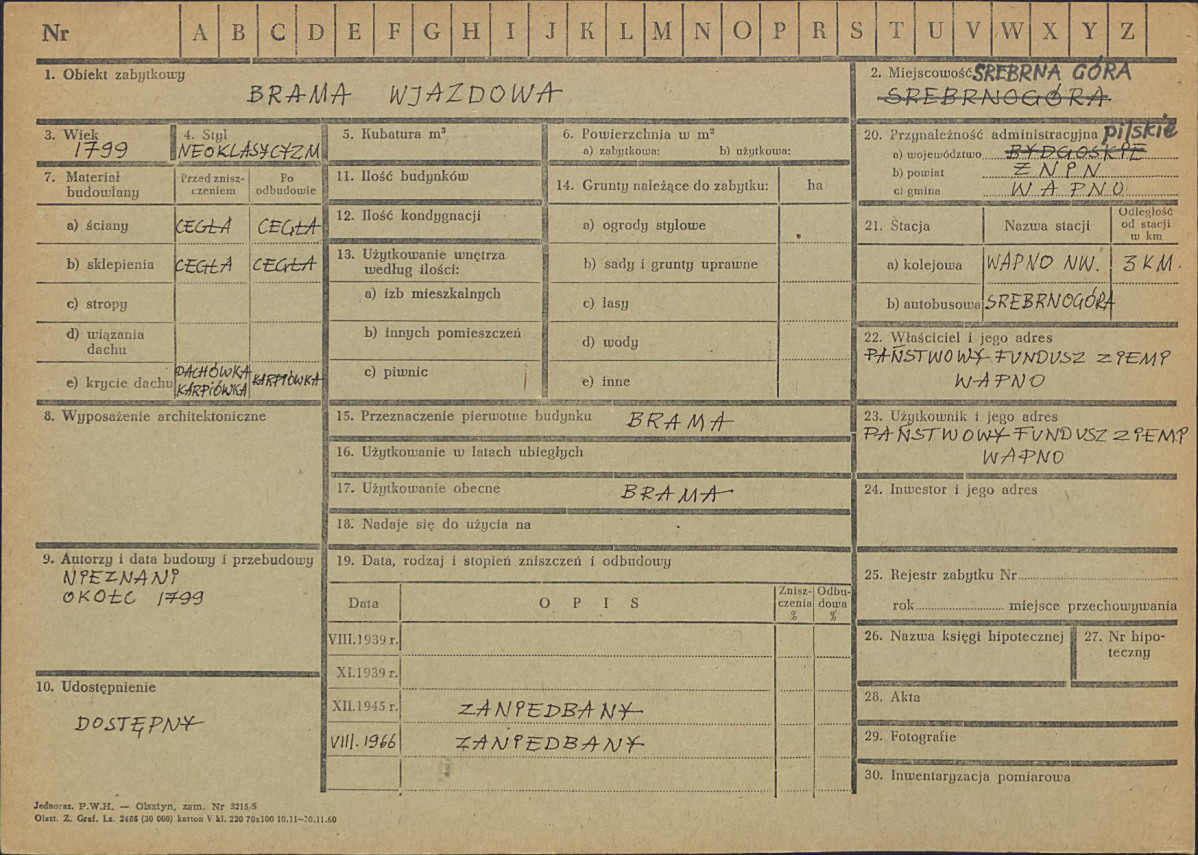 Nr A B C D E F G H I J K L M N O P R S T U V W X Y Z
1. Obiekt zabytkowy
BRAMA WJAZDOWA
2. Miejscowość SREBRNA GÓRA
SREBRNOGÓRA
3. Wiek
1799
4. Styl
NEOKLASYCYZM
5. Kubatura m³
6. Powierzchnia w m²
a) zabytkowa: b) użytkowa:
20. Przynależność administracyjna pilskie
a) województwo BYDGOSKIE
b) powiat ŻNIN
c) gmina WAPNO
7. Materiał
budowlany
Przed znisz-
czeniem
Po
odbudowie
a) ściany CEGŁA CEGŁA
b) sklepienia CEGŁA CEGŁA
c) stropy
d) wiązania
dachu
e) krycie dachu DACHÓWKA
KARPIÓWKA KARPIÓWKA
11. Ilość budynków
12. Ilość kondygnacji
13. Użytkowanie wnętrza
według ilości:
a) izb mieszkalnych
b) innych pomieszczeń
c) piwnic
14. Grunty należące do zabytku: ha
a) ogrody stylowe
b) sady i grunty uprawne
c) lasy
d) wody
e) inne
21. Stacja Nazwa stacji Odległość
od stacji
w km
a) kolejowa WAPNO NW. 3 KM.
b) autobusowa SREBRNOGÓRA
22. Właściciel i jego adres
PAŃSTWOWY FUNDUSZ ZIEMI
WAPNO
8. Wyposażenie architektoniczne
15. Przeznaczenie pierwotne budynku BRAMA
16. Użytkowanie w latach ubiegłych
17. Użytkowanie obecne BRAMA
18. Nadaje się do użycia na
23. Użytkownik i jego adres
PAŃSTWOWY FUNDUSZ ZIEMI
WAPNO
24. Inwestor i jego adres
9. Autorzy i data budowy i przebudowy
NIEZNANI
OKOŁO 1799
19. Data, rodzaj i stopień zniszczeń i odbudowy
Data OPIS Znisz-
czenia
%
Odbu-
dowa
%
VIII.1939 r.
XI.1939 r.
XII.1945 r. ZANIEDBANY
VIII.1966 ZANIEDBANY
25. Rejestr zabytku Nr
rok miejsce przechowywania
26. Nazwa księgi hipotecznej
27. Nr hipo-
teczny
10. Udostępnienie
DOSTĘPNY
28. Akta
29. Fotografie
30. Inwentaryzacja pomiarowa
Jednoraz. P.W.H. — Olsztyn, zam. Nr 3215/S
Olszt. Z. Graf. Lz. 2485 (30 000) karton V kl. 220 70x100 10.11—20.11.60